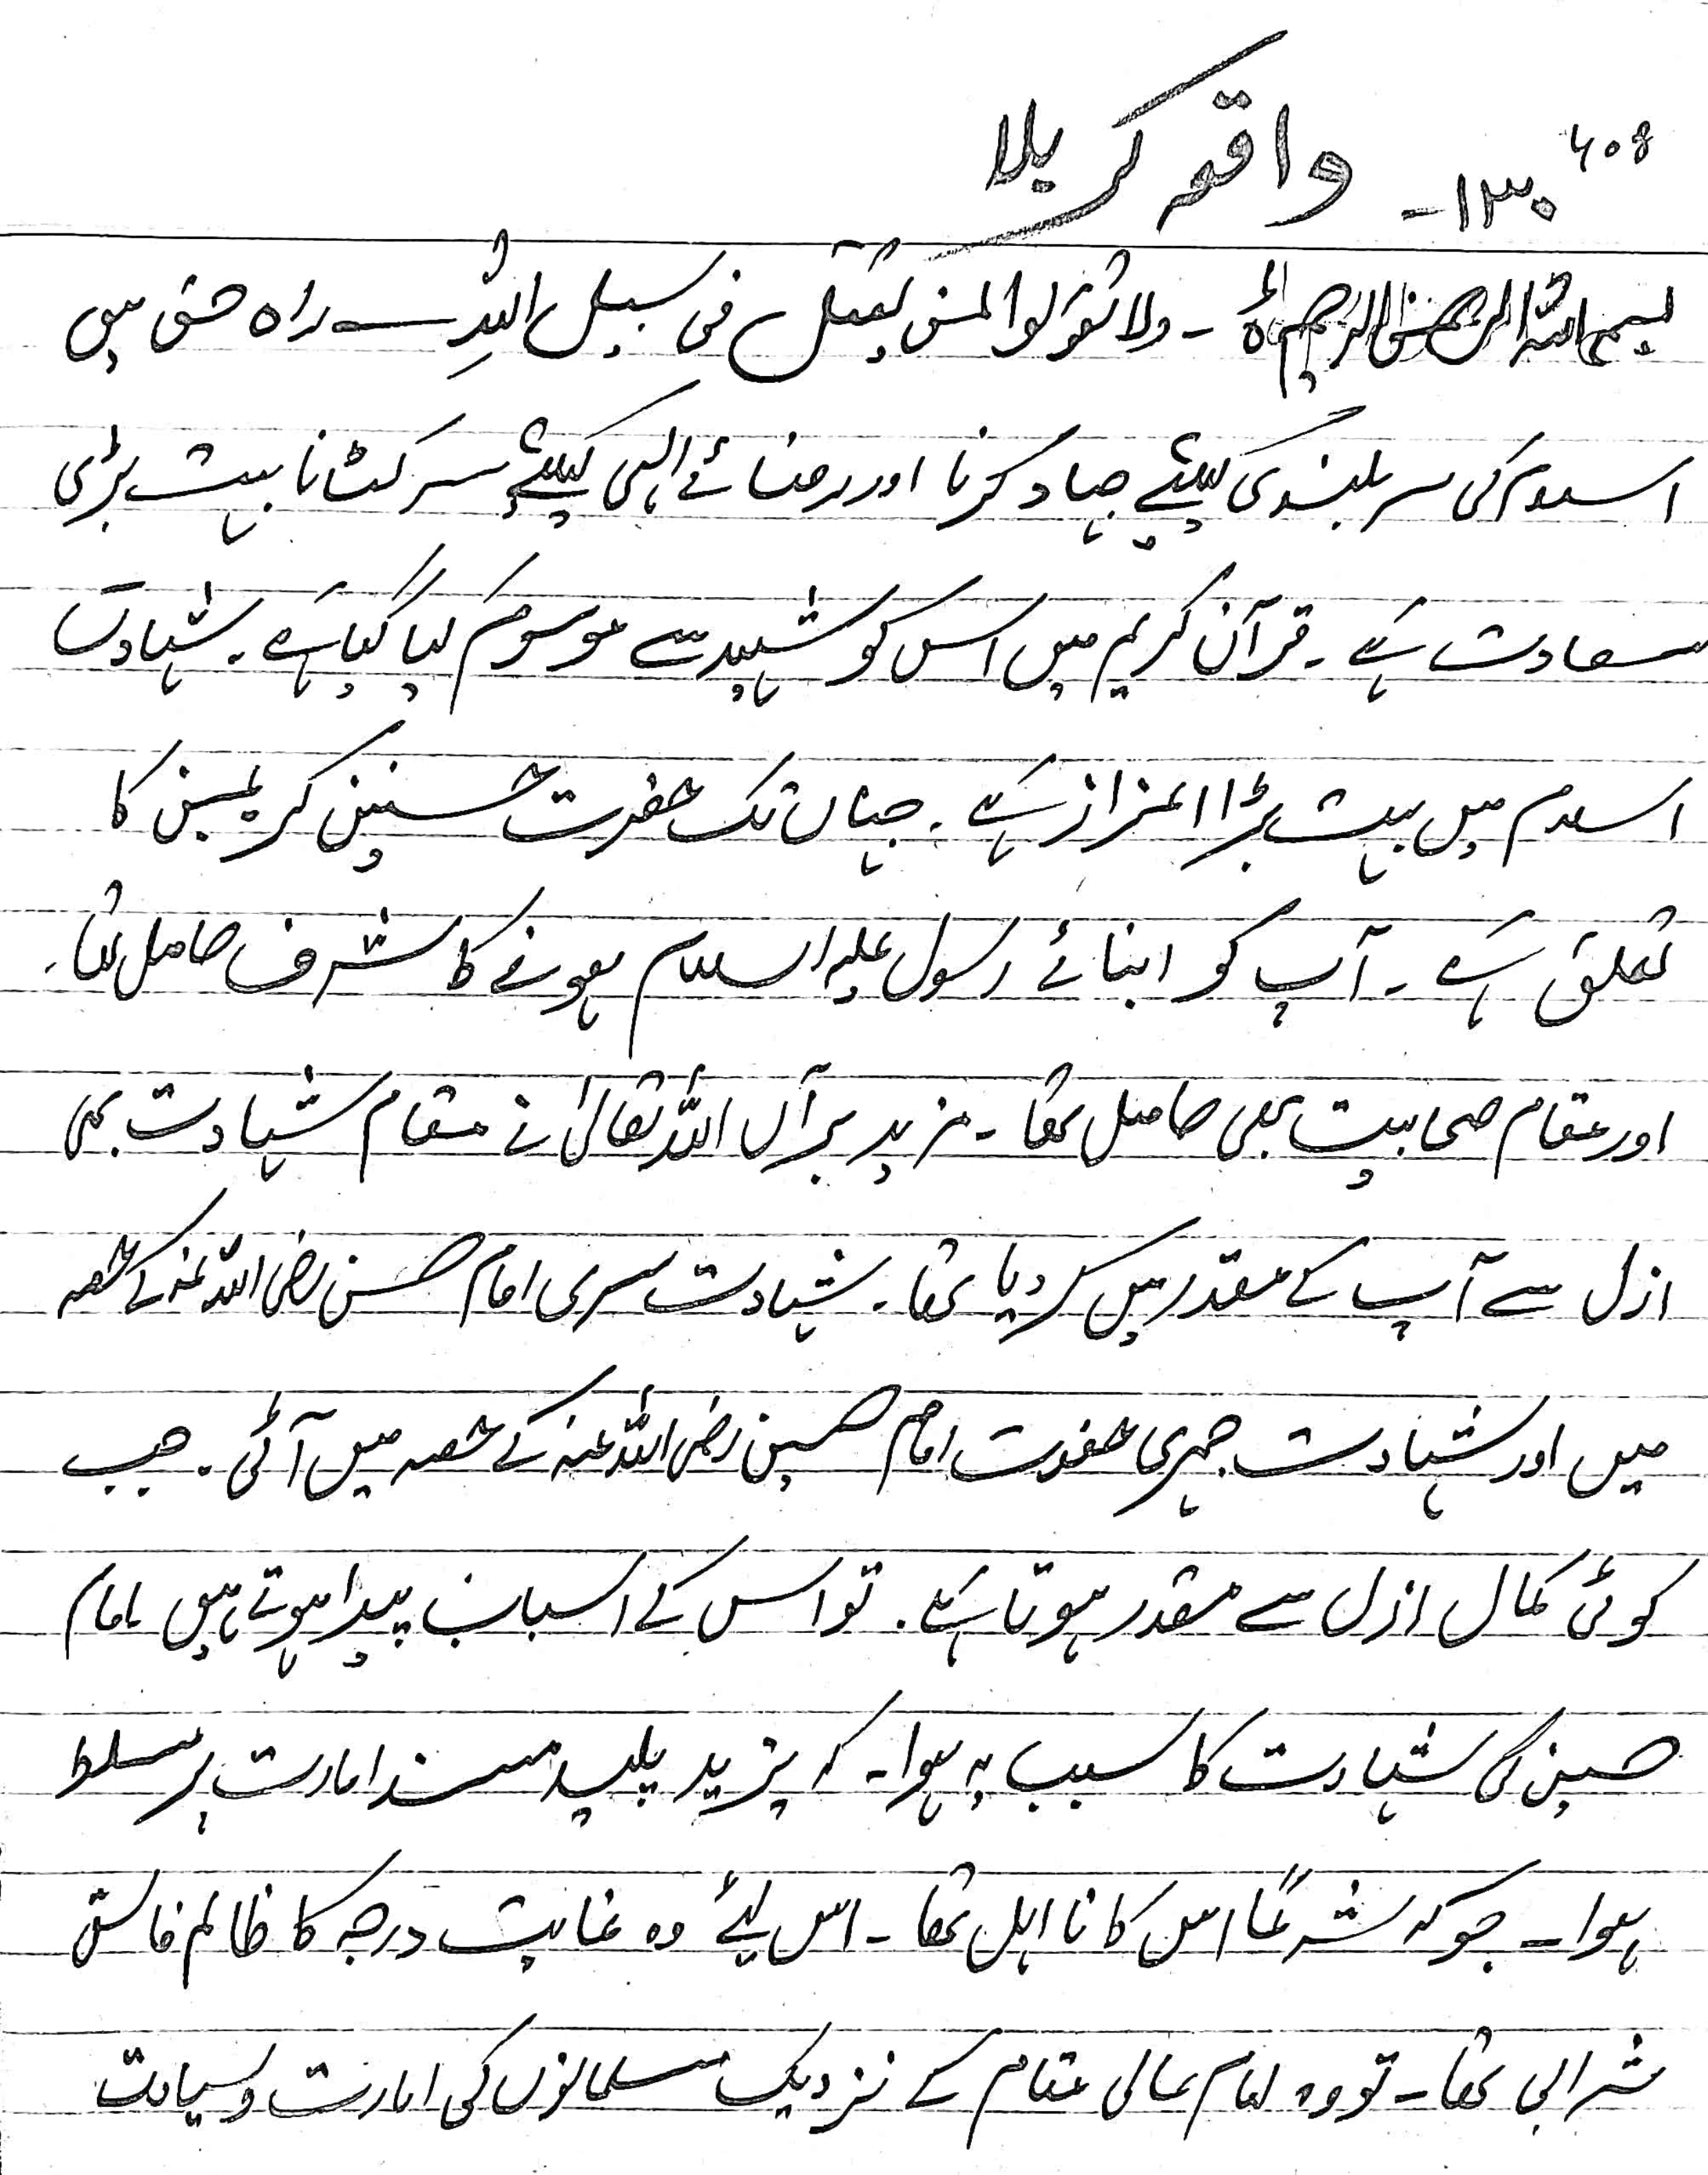 ۶۰۸
۱۳۰- واقعہ کربلا
بسم اللہ الرحمٰن الرحیم ہ - ولا تقولوا لمن یقتل فی سبیل اللہِ راہ حق میں
اسلام کی سر بلندی کیلئے جہاد کرنا اور رضائے الٰہی کیلئے سر کٹانا بہت بڑی
سعادت ہے - قرآن کریم میں اس کو شہید سے موسوم کیا گیا ہے - شہادت
اسلام میں بہت بڑا اعزاز ہے - جہاں تک حضرت حسنین کریمین کا
تعلق ہے - آپ کو ابنائے رسول علیہ السلام ہونے کا شرف حاصل تھا -
اور مقام صحابیت بھی حاصل تھا - مزید برآں اللہ تعالیٰ نے مقام شہادت بھی
ازل سے آپ کے مقدر میں کر دیا تھا - شہادت سری امام حسن رضی اللہ عنہ کے حصہ
میں اور شہادت جہری حضرت امام حسین رضی اللہ عنہ کے حصہ میں آئی - جب
کوئی کمال ازل سے مقدر ہوتا ہے - تو اس کے اسباب پیدا ہوتے ہیں امام
حسین کی شہادت کا سبب یہ ہوا - کہ یزید پلید مسند امارت پر مسلط
ہوا - جو کہ شرعاً اس کا نا اہل تھا - اس لیئے وہ غایت درجہ کا ظالم فاسق
شرابی تھا - تو وہ امام عالی مقام کے نزدیک مسلمانوں کی امارت و سیادت